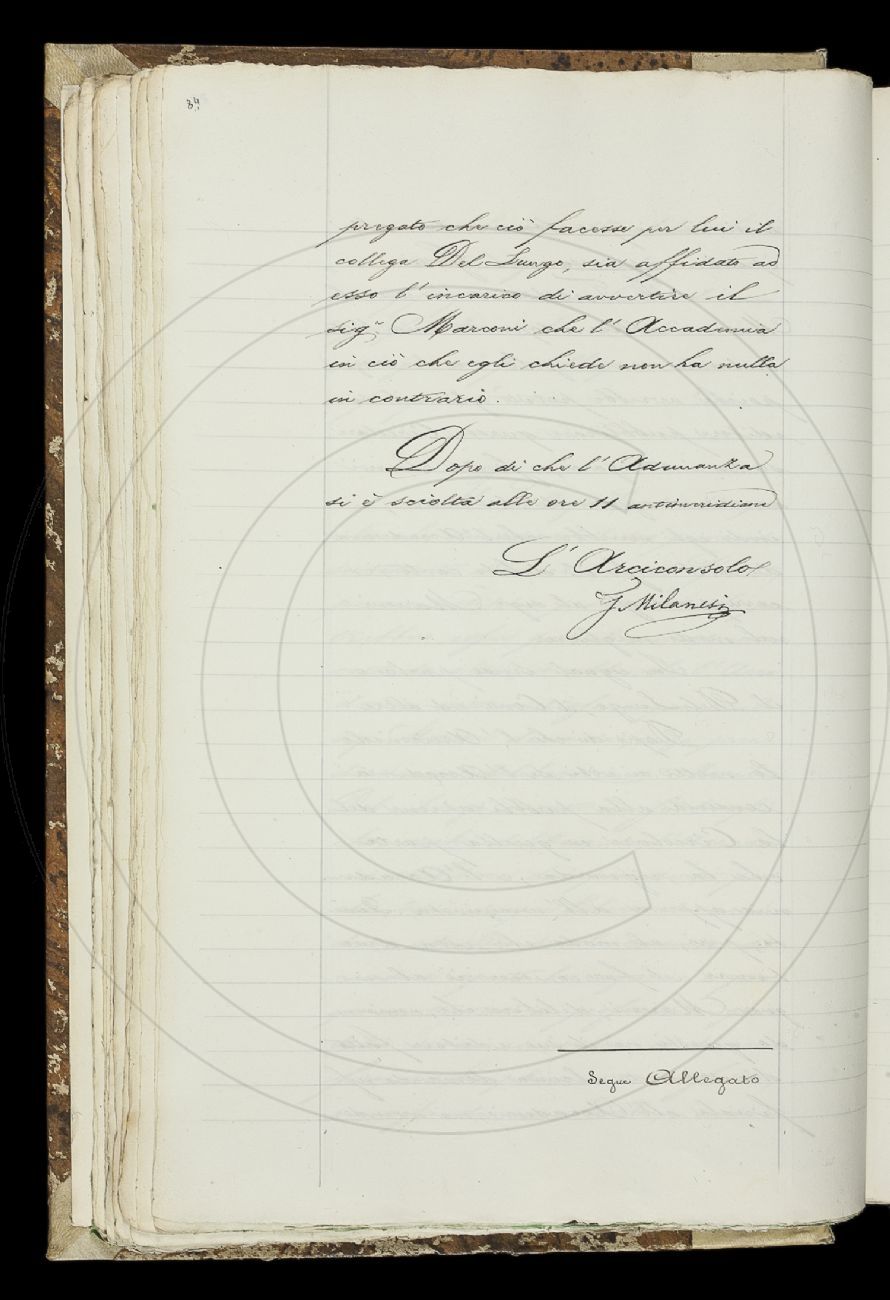 84
pregato che ciò facesse per lui il
collega Del Lungo, sia affidato ad
esso l'incarico di avvertire il
sigr. Marconi che l'Accademia
in ciò che egli chiede non ha nulla
in contrario.
Dopo di che l'Adunanza
si è sciolta alle ore 11 antimeridiane
L'Arciconsolo
G Milanesi
Segue Allegato